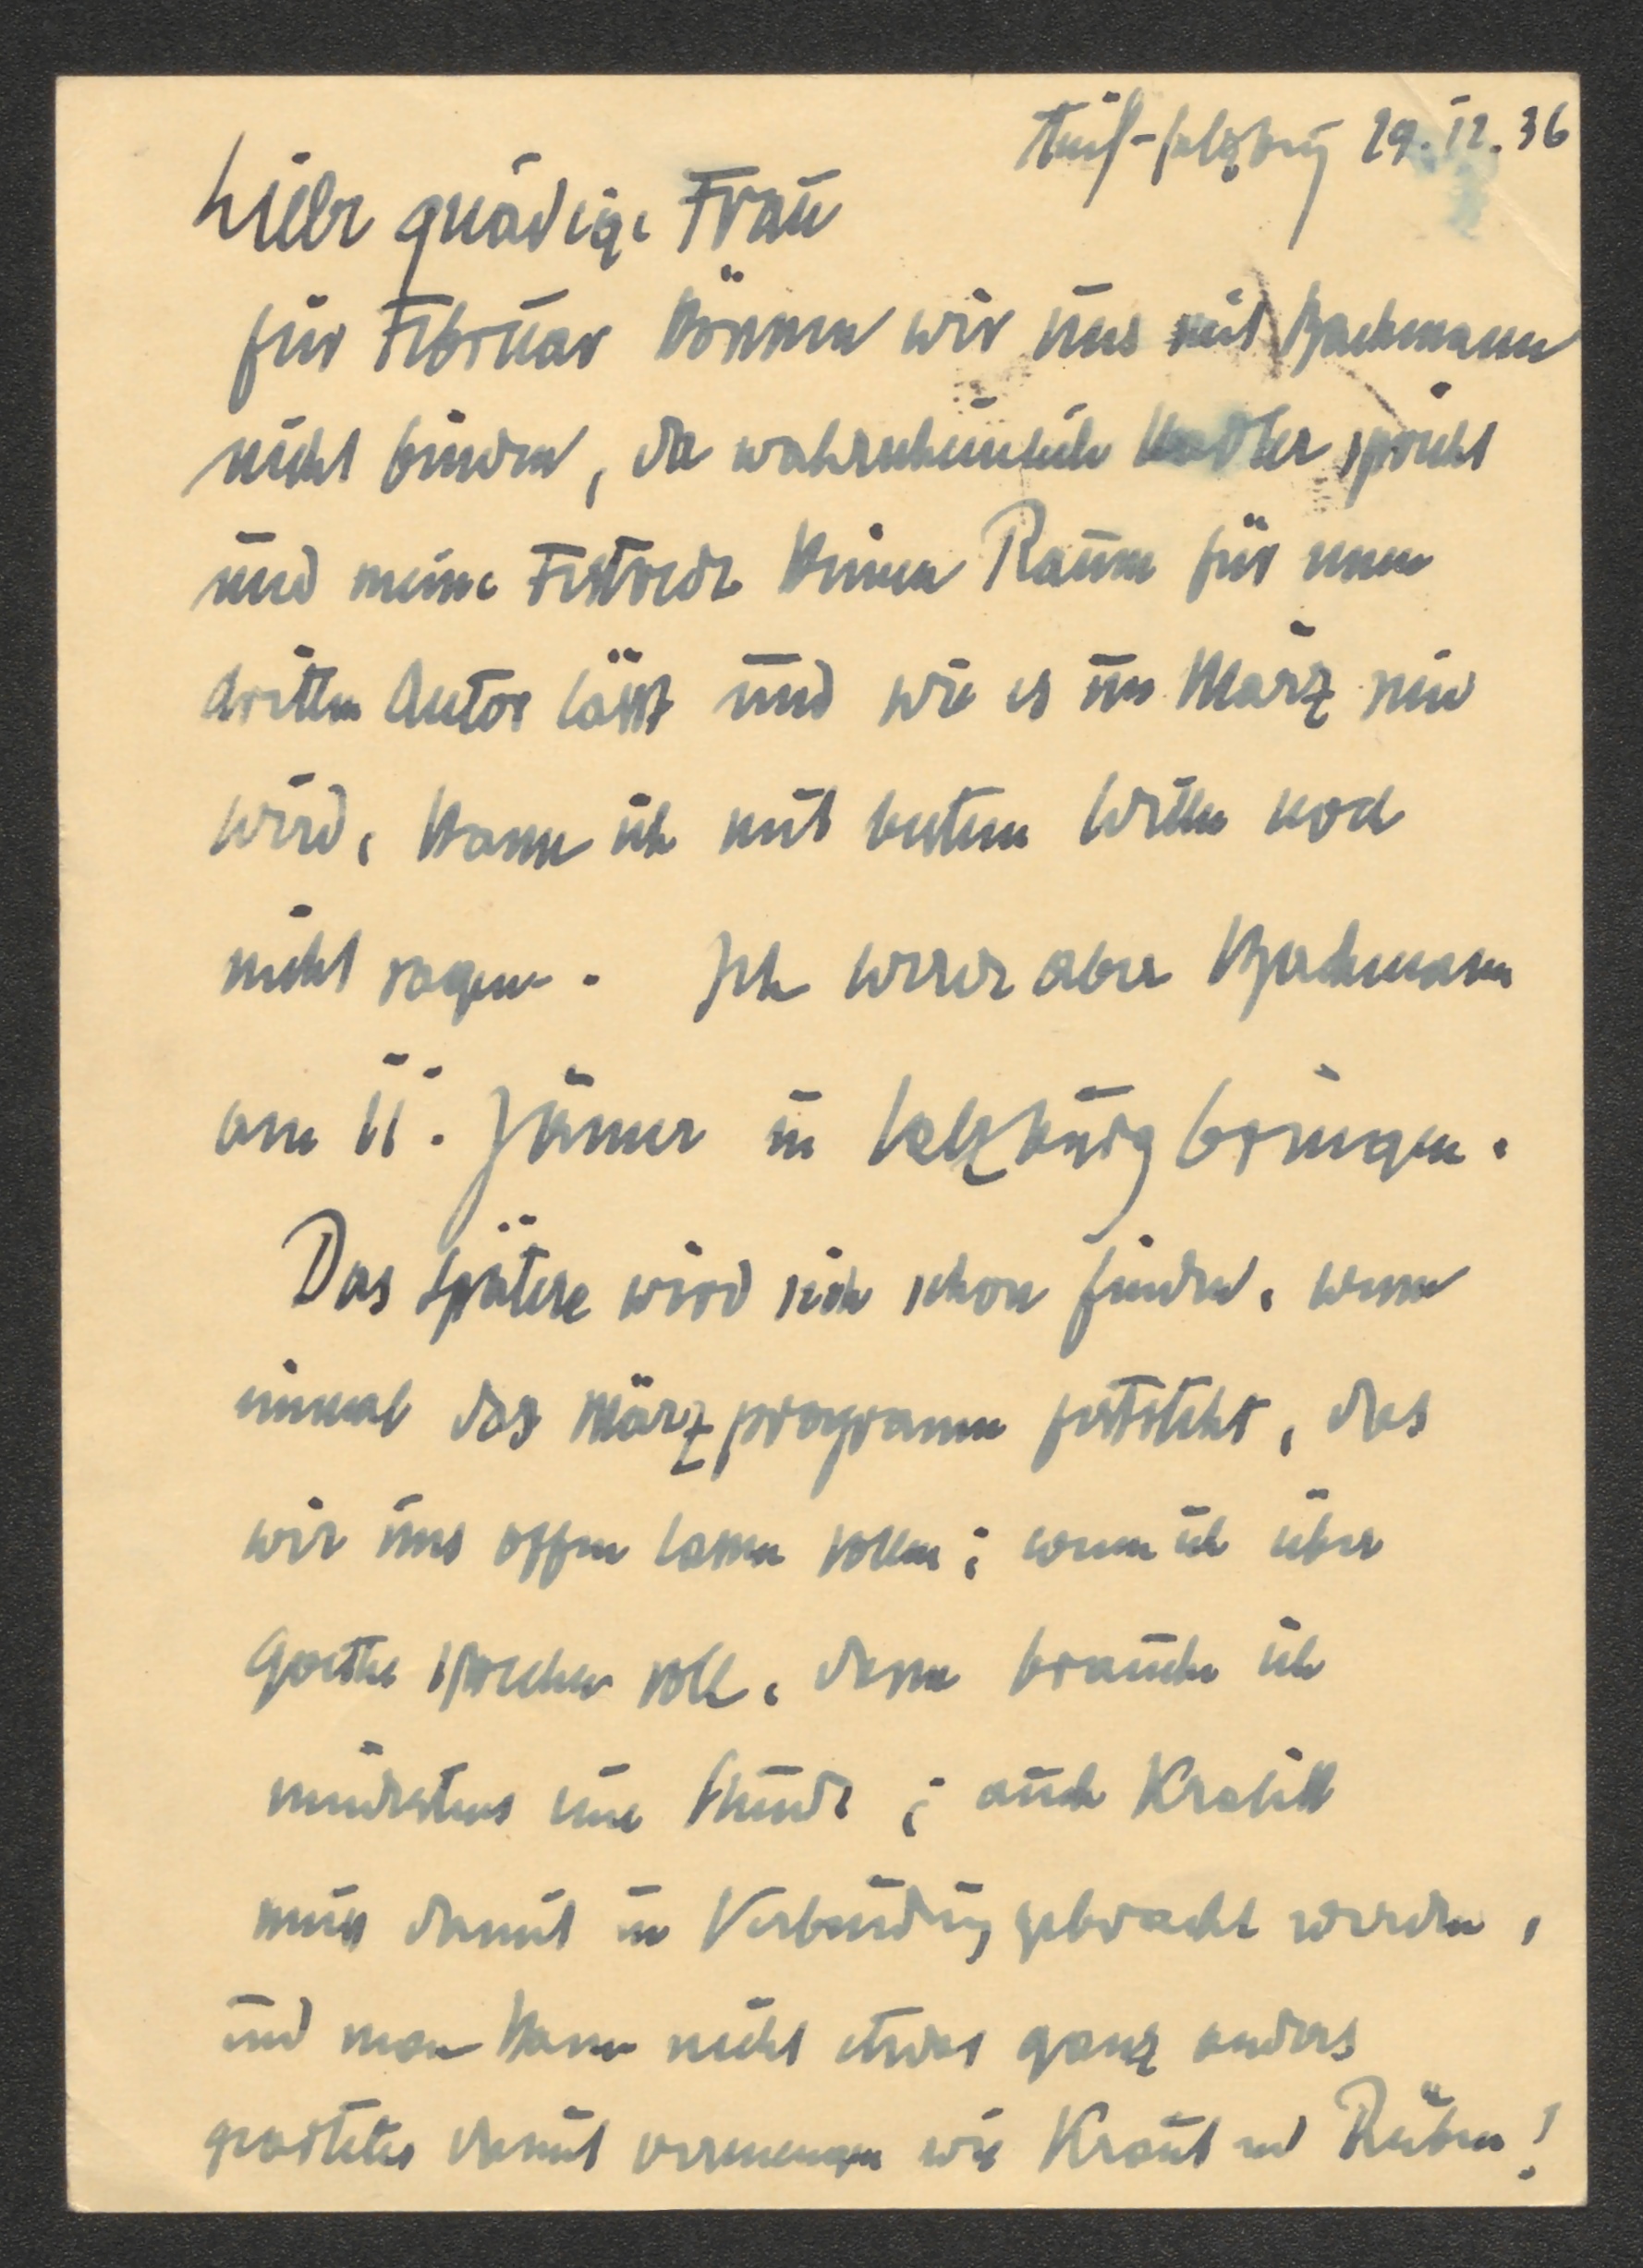 Aigl-Salzburg 29.12.36
Liebe gnädige Frau
für Februar können wir uns mit Bachmann
nicht binden, da wahrscheinlich Nadler spricht
und meine Festrede keinen Raum für einen
dritten Autor lässt und wie es im März sein
wird, kann ich mit bestem Willen noch
nicht sagen. Ich werde aber Bachmann
am 11. Jänner in Salzburg bringen.
Das Spätere wird sich schon finden, wenn
einmal das Märzprogramm feststeht, das
wir uns offen lassen sollen; wenn ich über
Goethe sprechen soll, dann brauche ich
mindestens eine Stunde; auch Kralik
muss damit in Verbindung gebracht werden,
und man kann nicht etwas ganz anders
geartetes damit vermengen wie Kraut und Rüben!